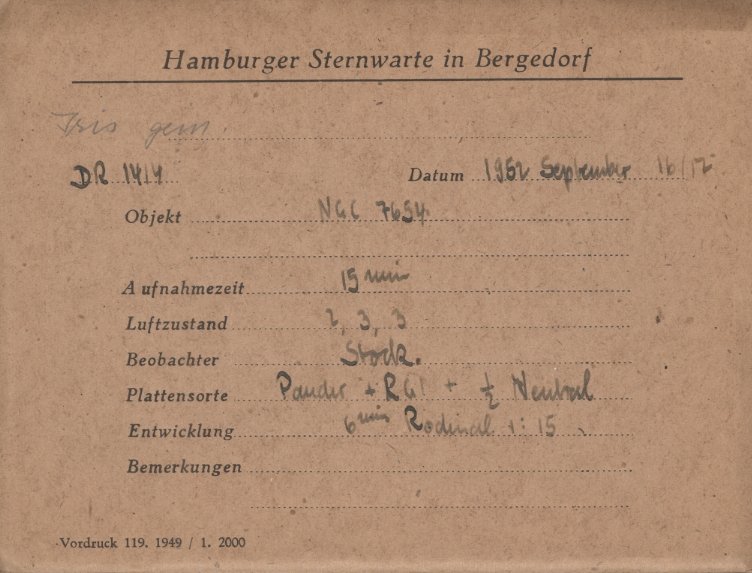 Hamburger Sternwarte in Bergedorf
Iris gem.
DR 1414 Datum 1952 September 16/17
Objekt NGC 7654
Aufnahmezeit 15 min
Luftzustand 2, 3, 3
Beobachter Stock.
Plattensorte + RG1 + ½ Neutral
Entwicklung 6 min Rodinal 1:15
Bemerkungen
Vordruck 119. 1949 / 1. 2000